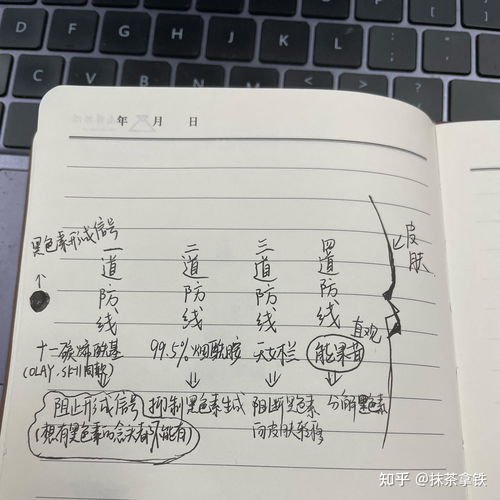 年 月 日
黑色素形成信号
一道防线
二道防线
三道防线
四道防线
皮肤
直观
十二碳烯酰基
(OLAY、SKII同款)
99.5%烟酰胺
天女木兰
能果苷
阻止形成信号
(想有黑色素的念头都不能有)
抑制黑色素生成
阻断黑色素
向皮肤移移
分解黑色素
知乎 @抹茶拿铁